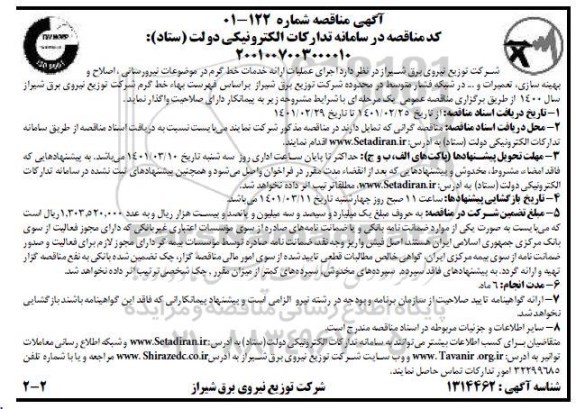 آگهی مناقصه شماره ۱۲۲-۰۱
کد مناقصه در سامانه تدارکات الکترونیکی دولت (ستاد):
۲۰۰۱۰۰۷۰۰۳۰۰۰۰۱۰
شرکت توزیع نیروی برق شیراز در نظر دارد اجرای عملیات ارائه خدمات خط گرم در موضوعات نیرورسانی ، اصلاح و
بهینه سازی، تعمیرات و ... در شبکه فشار متوسط در محدوده شرکت توزیع برق شیراز براساس فهرست بهاء خط گرم شرکت توزیع نیروی برق شیراز
سال ۱۴۰۰ از طریق برگزاری مناقصه عمومی یک مرحله ای با شرایط مشروحه زیر به پیمانکار دارای صلاحیت واگذار نماید.
۱- تاریخ دریافت اسناد مناقصه: از تاریخ ۱۴۰۱/۰۲/۲۵ تا تاریخ ۱۴۰۱/۰۲/۲۹
۲- محل دریافت اسناد مناقصه: مناقصه گرانی که تمایل دارند در مناقصه مذکور شرکت نمایند می بایست نسبت به دریافت اسناد مناقصه از طریق سامانه
تدارکات الکترونیکی دولت (ستاد) به آدرس: www.Setadiran.ir اقدام نمایند.
۳- مهلت تحویل پیشنهادها (پاکت های الف، ب و ج): حداکثر تا پایان ساعت اداری روز سه شنبه تاریخ ۱۴۰۱/۰۳/۱۰ می باشد. به پیشنهادهایی که
فاقد امضاء، مشروط، مخدوش و پیشنهادهایی که بعد از انقضاء مدت مقرر در فراخوان واصل می شود و همچنین پیشنهادهای ثبت نشده در سامانه تدارکات
الکترونیکی دولت (ستاد) به آدرس: www.Setadiran.ir، مطلقا ترتیب اثر داده نخواهد شد.
۴- تاریخ بازگشایی پیشنهادها: ساعت ۱۱ صبح روز چهارشنبه تاریخ ۱۴۰۱/۰۳/۱۱ می باشد.
۵- مبلغ تضمین شرکت در مناقصه: به حروف مبلغ یک میلیارد و سیصد و سه میلیون و پانصد و بیست هزار ریال و به عدد ۱.۳۰۳.۵۲۰.۰۰۰ ریال است
که می بایست به صورت یکی از موارد ضمانت نامه بانکی و یا ضمانت نامه های صادره از سوی موسسات اعتباری غیربانکی که دارای مجوز فعالیت از سوی
بانک مرکزی جمهوری اسلامی ایران هستند، اصل فیش واریز وجه نقد، ضمانت نامه صادره توسط موسسات بیمه گر دارای مجوز لازم برای فعالیت و صدور
ضمانت نامه از سوی بیمه مرکزی ایران، گواهی خالص مطالبات قطعی تایید شده از سوی امور مالی مناقصه گزار، چک تضمین شده بانکی به نفع مناقصه گزار
تهیه و ارائه گردد. به پیشنهادهای فاقد سپرده، سپرده های مخدوش، سپرده های کمتر از میزان مقرر ، چک شخصی ترتیب اثر داده نخواهد شد.
۶- مدت انجام: ۶ ماه.
۷- ارائه گواهینامه تایید صلاحیت از سازمان برنامه و بودجه در رشته نیرو الزامی است و پیشنهاد پیمانکارانی که فاقد این گواهینامه باشند بازگشایی
نخواهد شد.
۸- سایر اطلاعات و جزئیات مربوطه در اسناد مناقصه مندرج است.
متقاضیان برای کسب اطلاعات بیشتر می توانند به سامانه تدارکات الکترونیکی دولت (ستاد) به آدرس: www.Setadiran.ir و شبکه اطلاع رسانی معاملات
توانیر به آدرس: www. Tavanir .org.ir و وب سایت شرکت توزیع نیروی برق شیراز به آدرس www. Shirazedc.co.ir مراجعه و یا با شماره تلفن
۳۲۲۹۹۶۸۵ امور تدارکات تماس حاصل نمایند.
شناسه آگهی : ۱۳۱۴۴۶۲ شرکت توزیع نیروی برق شیراز ۲-۲